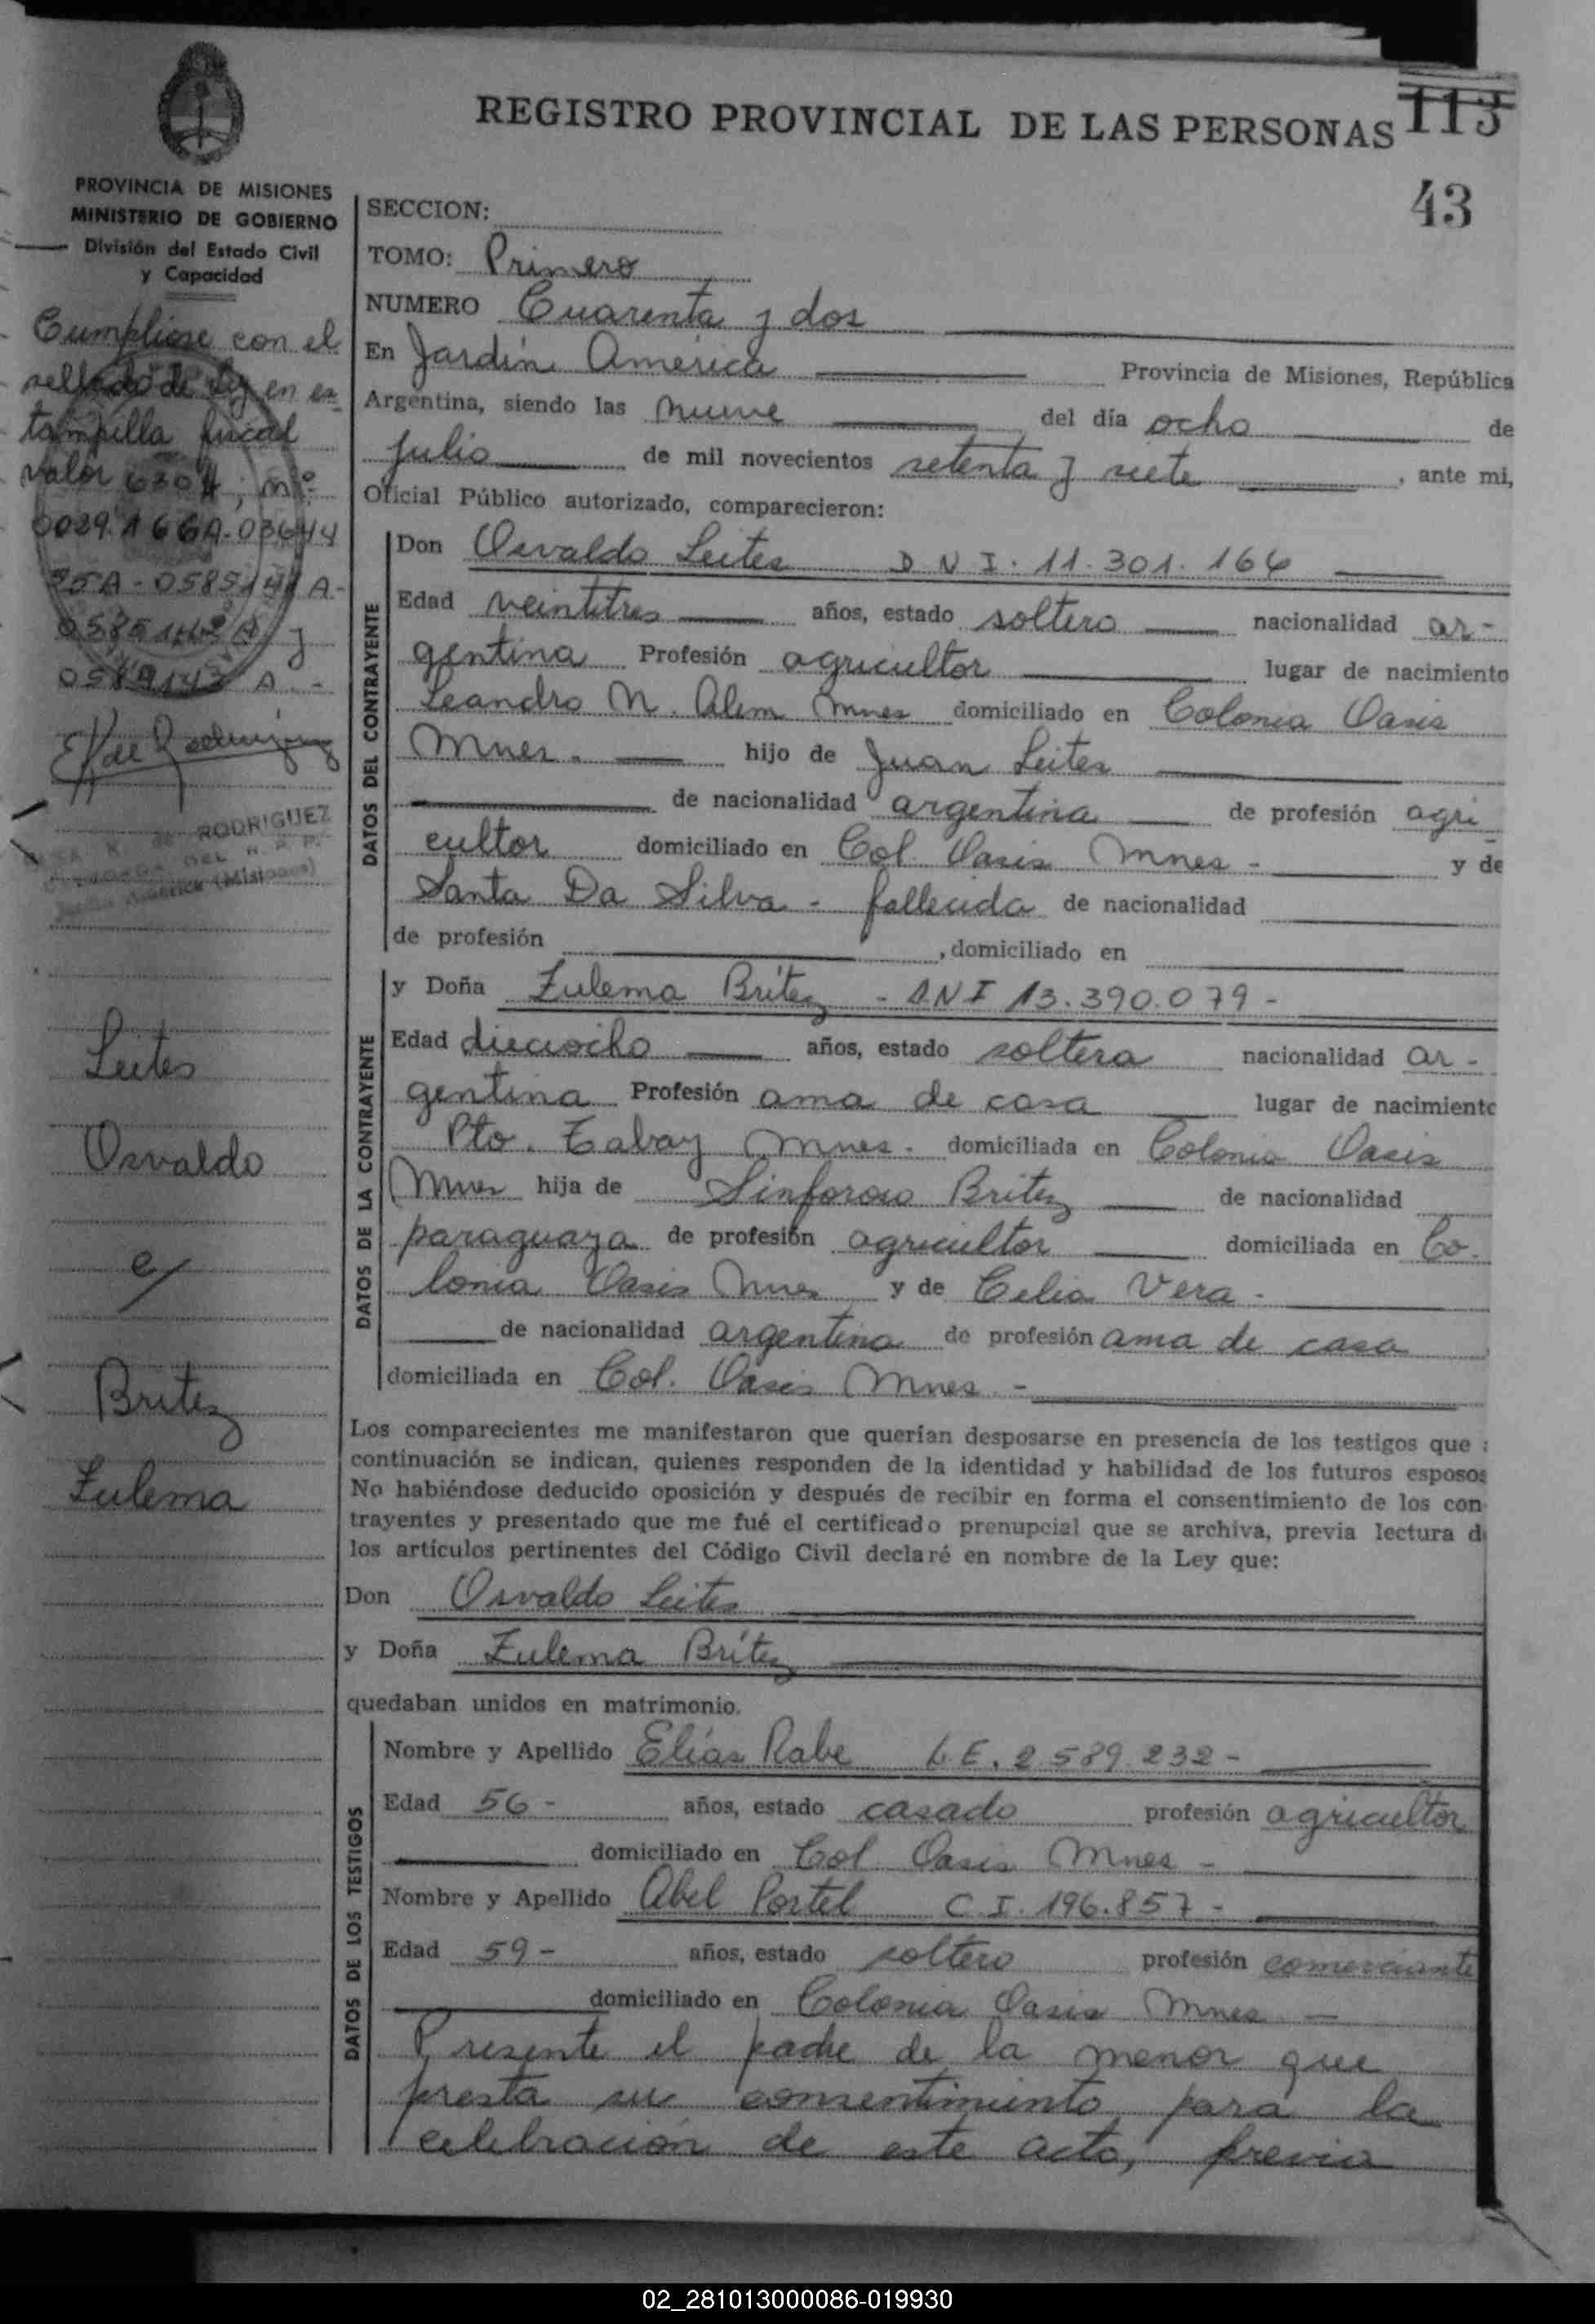 REGISTRO PROVINCIAL DE LAS PERSONAS
113
43
PROVINCIA DE MISIONES
MINISTERIO DE GOBIERNO
División del Estado Civil
y Capacidad
Cumpliose con el
sellado de Ley en es
tampilla fiscal
valor 630 ; nº
Leites
Osvaldo
c/
Britez
Zulema
RODRIGUEZ
SECCION:
TOMO: Primero
NUMERO Cuarenta y dos
En Jardín América Provincia de Misiones, República
Argentina, siendo las nueve del día ocho de
julio de mil novecientos setenta y siete, ante mi,
Oficial Público autorizado, comparecieron:
DATOS DEL CONTRAYENTE
Don Osvaldo Leites D N I. 11.301.166
Edad veintitres años, estado soltero nacionalidad ar-
gentina Profesión agricultor lugar de nacimiento
Leandro N. Alem Mnes domiciliado en Colonia Oasis
Mnes. hijo de Juan Leites
de nacionalidad argentina de profesión agri
cultor domiciliado en Col. Oasis Mnes - y de
Santa Da Silva - fallecida de nacionalidad
de profesión , domiciliado en
DATOS DE LA CONTRAYENTE
y Doña Zulema Brítez - D.N I 13.390.079 -
Edad dieciocho años, estado soltera nacionalidad ar-
gentina Profesión ama de casa lugar de nacimiento
Pto. Tabay Mnes. domiciliada en Colonia Oasis
Mnes hija de Sinforoso Britez de nacionalidad
paraguaya de profesión agricultor domiciliada en Co-
lonia Oasis Mnes y de Celia Vera -
de nacionalidad argentina de profesión ama de casa
domiciliada en Col. Oasis Mnes -
Los comparecientes me manifestaron que querían desposarse en presencia de los testigos que
continuación se indican, quienes responden de la identidad y habilidad de los futuros esposos
No habiéndose deducido oposición y después de recibir en forma el consentimiento de los con
trayentes y presentado que me fué el certificado prenupcial que se archiva, previa lectura d
los artículos pertinentes del Código Civil declaré en nombre de la Ley que:
Don Osvaldo Leites
y Doña Zulema Brítez
quedaban unidos en matrimonio.
DATOS DE LOS TESTIGOS
Nombre y Apellido Elías Rabe L.E. 2.589.232 -
Edad 56 - años, estado casado profesión agricultor
domiciliado en Col Oasis Mnes -
Nombre y Apellido Abel Portel C.I. 196.857 -
Edad 59 - años, estado soltero profesión comerciante
domiciliado en Colonia Oasis Mnes -
Presente el padre de la menor que
presta su consentimiento para la
celebración de este acto, previa
02_281013000086-019930